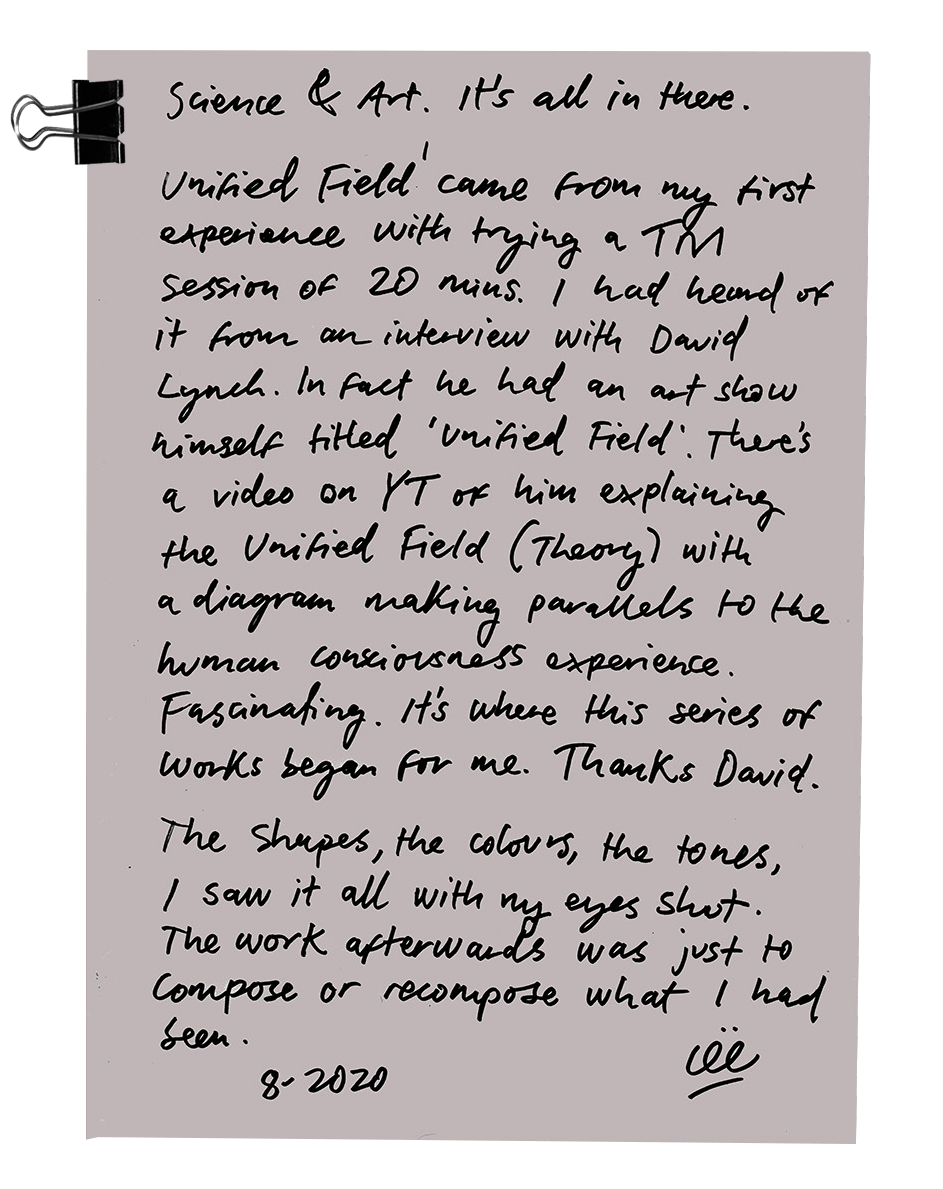 Science & Art. It's all in there.
Unified Field' came from my first
experience with trying a TM
session of 20 mins. I had heard of
it from an interview with David
Lynch. In fact he had an art show
himself titled 'Unified Field'. There's
a video on YT of him explaining
the Unified Field (Theory) with
a diagram making parallels to the
human consciousness experience.
Fascinating. It's where this series of
works began for me. Thanks David.
The shapes, the colours, the tones,
I saw it all with my eyes shut.
The work afterwards was just to
compose or recompose what I had
seen.
8-2020